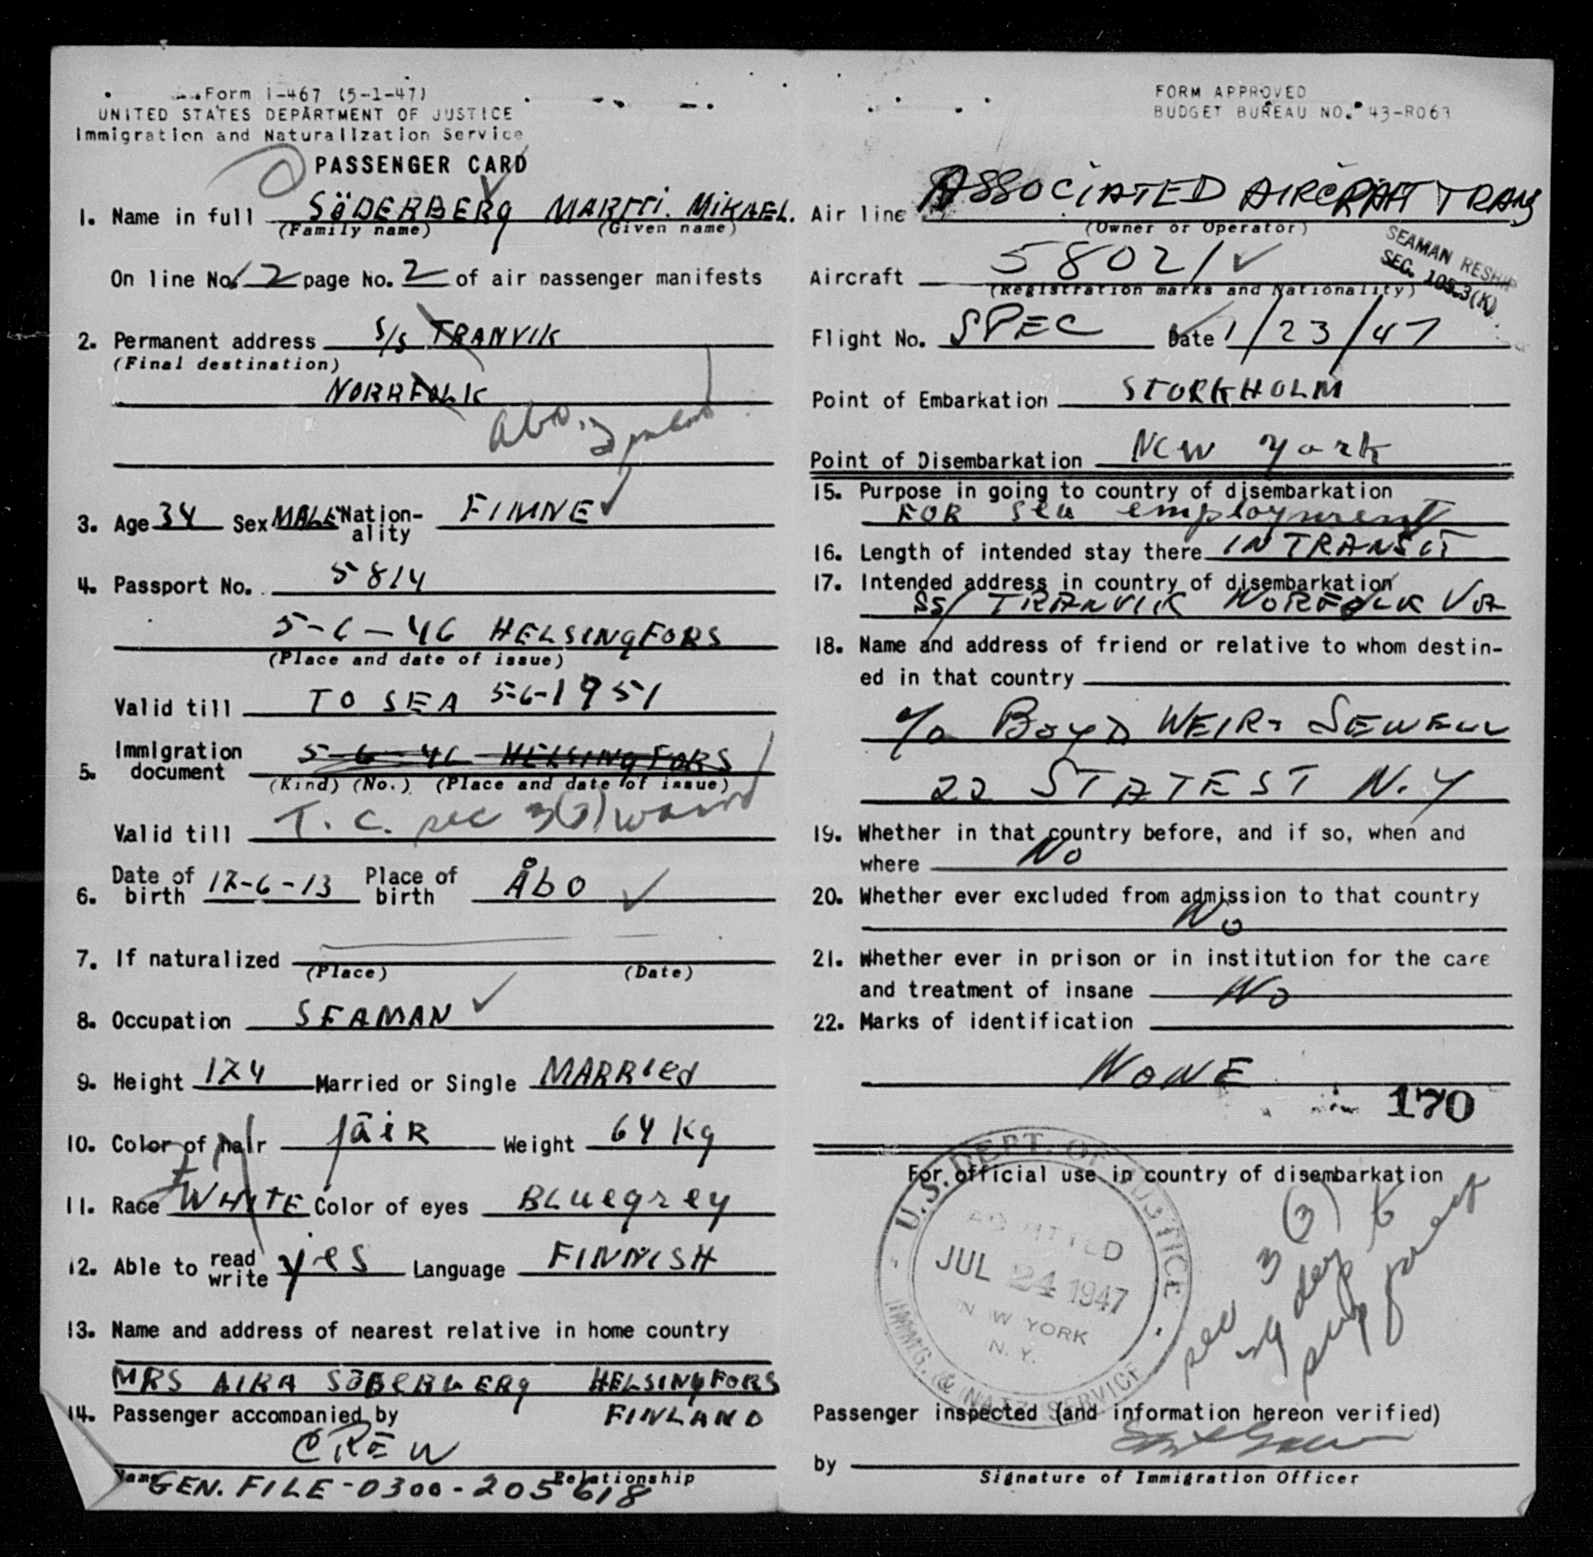 Form I-467 (5-1-47)
UNITED STATES DEPARTMENT OF JUSTICE
Immigration and Naturalization Service
PASSENGER CARD
1. Name in full SöDERBERg MARTTI. MIKAEL.
(Family name) (Given name)
On line No. 2 page No. 2 of air passenger manifests
2. Permanent address S/S TRANVIK
(Final destination)
NORRFOLK
Abo,
3. Age 34 Sex MALE Nation-ality FINNE
4. Passport No. 5814
5-6-46 HELSINgFORS
(Place and date of issue)
Valid till TO SEA 5-6-1951
5. Immigration document 5-6-46 HELSINgFORS
(Kind) (No.) (Place and date of issue)
T. C. sec 3(3)
Valid till
6. Date of birth 12-6-13 Place of birth Åbo
7. If naturalized
(Place) (Date)
8. Occupation SEAMAN
9. Height 174 Married or Single MARRIEd
10. Color of hair fäiR Weight 64 Kg
11. Race WHITE Color of eyes BLuegrey
12. Able to read write yes Language FINNISH
13. Name and address of nearest relative in home country
MRS AIRA SöBERBERg HELSINgFORS
14. Passenger accompanied by FINLAND
CREW
Name Relationship
GEN. FILE-0300-205618
FORM APPROVED
BUDGET BUREAU NO. 43-R063
Air line ASSOCIATED AIRCRAFT TRANS
(Owner or Operator)
SEAMAN RESHIP
SEC. 105.3(K)
Aircraft 58021
(Registration marks and Nationality)
Flight No. SPEC Date 1/23/47
Point of Embarkation STORKHOLM
Point of Disembarkation New York
15. Purpose in going to country of disembarkation
FOR sea employment
16. Length of intended stay there IN TRANSIT
17. Intended address in country of disembarkation
SS/ TRANVIK NORFOLK Va
18. Name and address of friend or relative to whom destin-
ed in that country
c/o BOYD WEIR & SEWELL
22 STATE ST N.Y
19. Whether in that country before, and if so, when and
where No
20. Whether ever excluded from admission to that country
No
21. Whether ever in prison or in institution for the care
and treatment of insane No
22. Marks of identification
NONE
170
For official use in country of disembarkation
U.S. DEPT. OF JUSTICE
ADMITTED
JUL 24 1947
NEW YORK
N. Y.
IMMIG. & NATZ. SERVICE
sec 3 (3)
Passenger inspected (and information hereon verified)
by
Signature of Immigration Officer